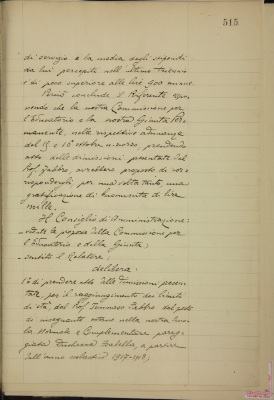 515
di servizio e la media degli stipendi
da lui percepiti nell'ultimo triennio
è di poco superiore alle lire 900 annue.
Perciò conclude il Referente
nendo che la nostra Commissione per
l'Educatorio e la nostra Giunta Per
manente, nelle rispettive adunanze
del 15 e 16 ottobre u. scorso, prendendo
atto delle dimissioni presentate dal
Prof. Fabbro, avrebbero proposto di
rispondergli per una volta tanto, una
gratificazione di buonuscita di lire
mille.
Il Consiglio di Amministrazione:
vedute le proposte della Commissione per
l'Educatorio e della Giunta;
sentito il Relatore;
delibera:
1° di prendere atto delle dimissioni presen
tate, per il raggiungimento dei limiti
di età, dal Prof. Tommaso Fabbro dal posto
di insegnante esterno nella nostra Scuo
la Normale e Complementare pareg
giata Duchessa Isabella, a partire
dall'anno scolastico 1917-1918;